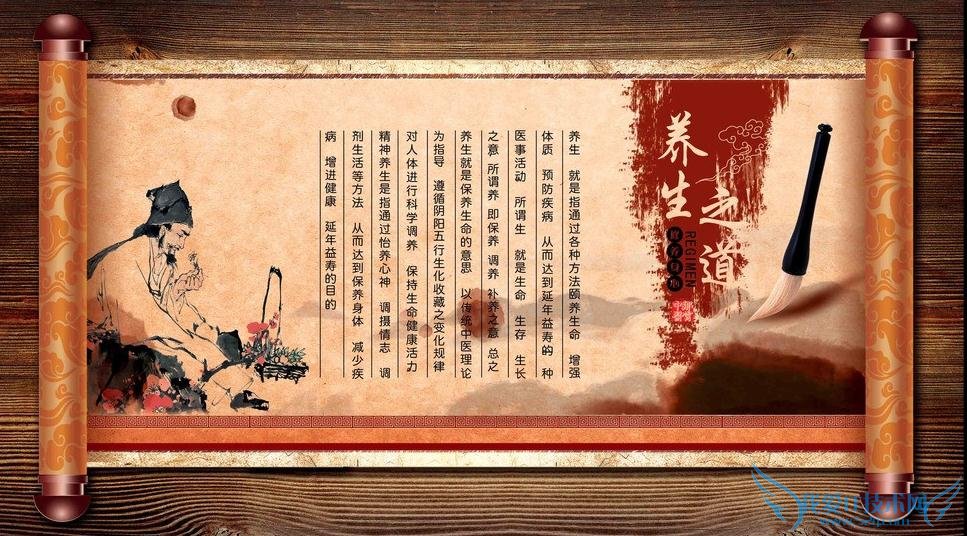 养生之道
REGIMEN
养生 就是指通过各种方法颐养生命 增强
体质 预防疾病 从而达到延年益寿的 种
医事活动 所谓生 就是生命 生存 生长
之意 所谓养 即保养 调养 补养之意 总之
养生就是保养生命的意思 以传统中医理论
为指导 遵循阴阳五行生化收藏之变化规律
对人体进行科学调养 保持生命健康活力
精神养生是指通过怡养心神 调摄情志 调
剂生活等方法 从而达到保养身体 减少疾
病 增进健康 延年益寿的目的